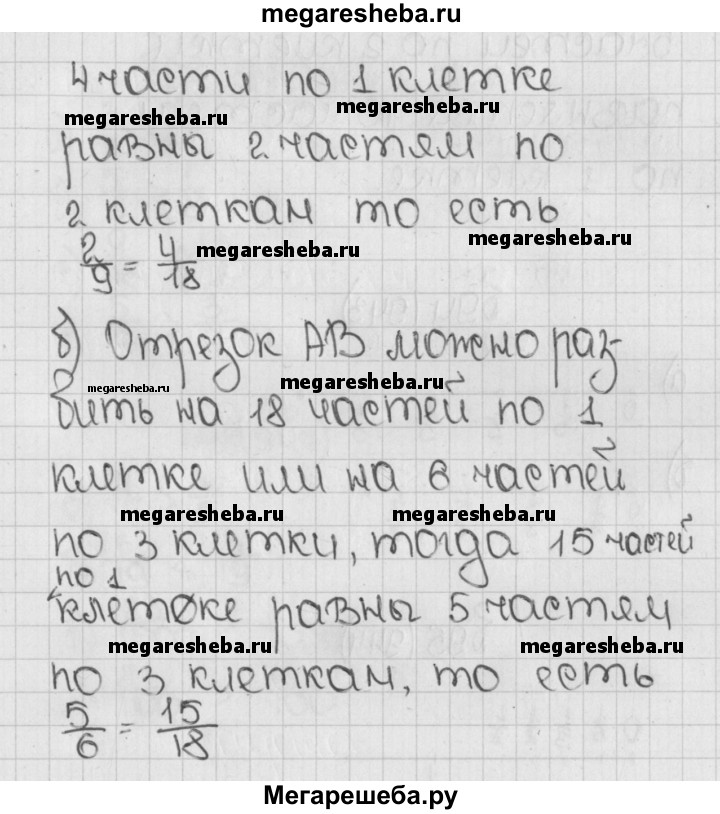 megaresheba.ru
4 части по 1 клетке
megaresheba.ru
megaresheba.ru
равны 2 частям по
2 клеткам то есть
megaresheba.ru
megaresheba.ru
2/9 = 4/18
б) Отрезок АВ можно раз-
megaresheba.ru
megaresheba.ru
бить на 18 частей по 1
клетке или на 6 частей
megaresheba.ru
megaresheba.ru
по 3 клетки, тогда 15 частей
по 1
клетке равны 5 частям
megaresheba.ru
megaresheba.ru
по 3 клеткам, то есть
5/6 = 15/18
Мегарешеба.ру